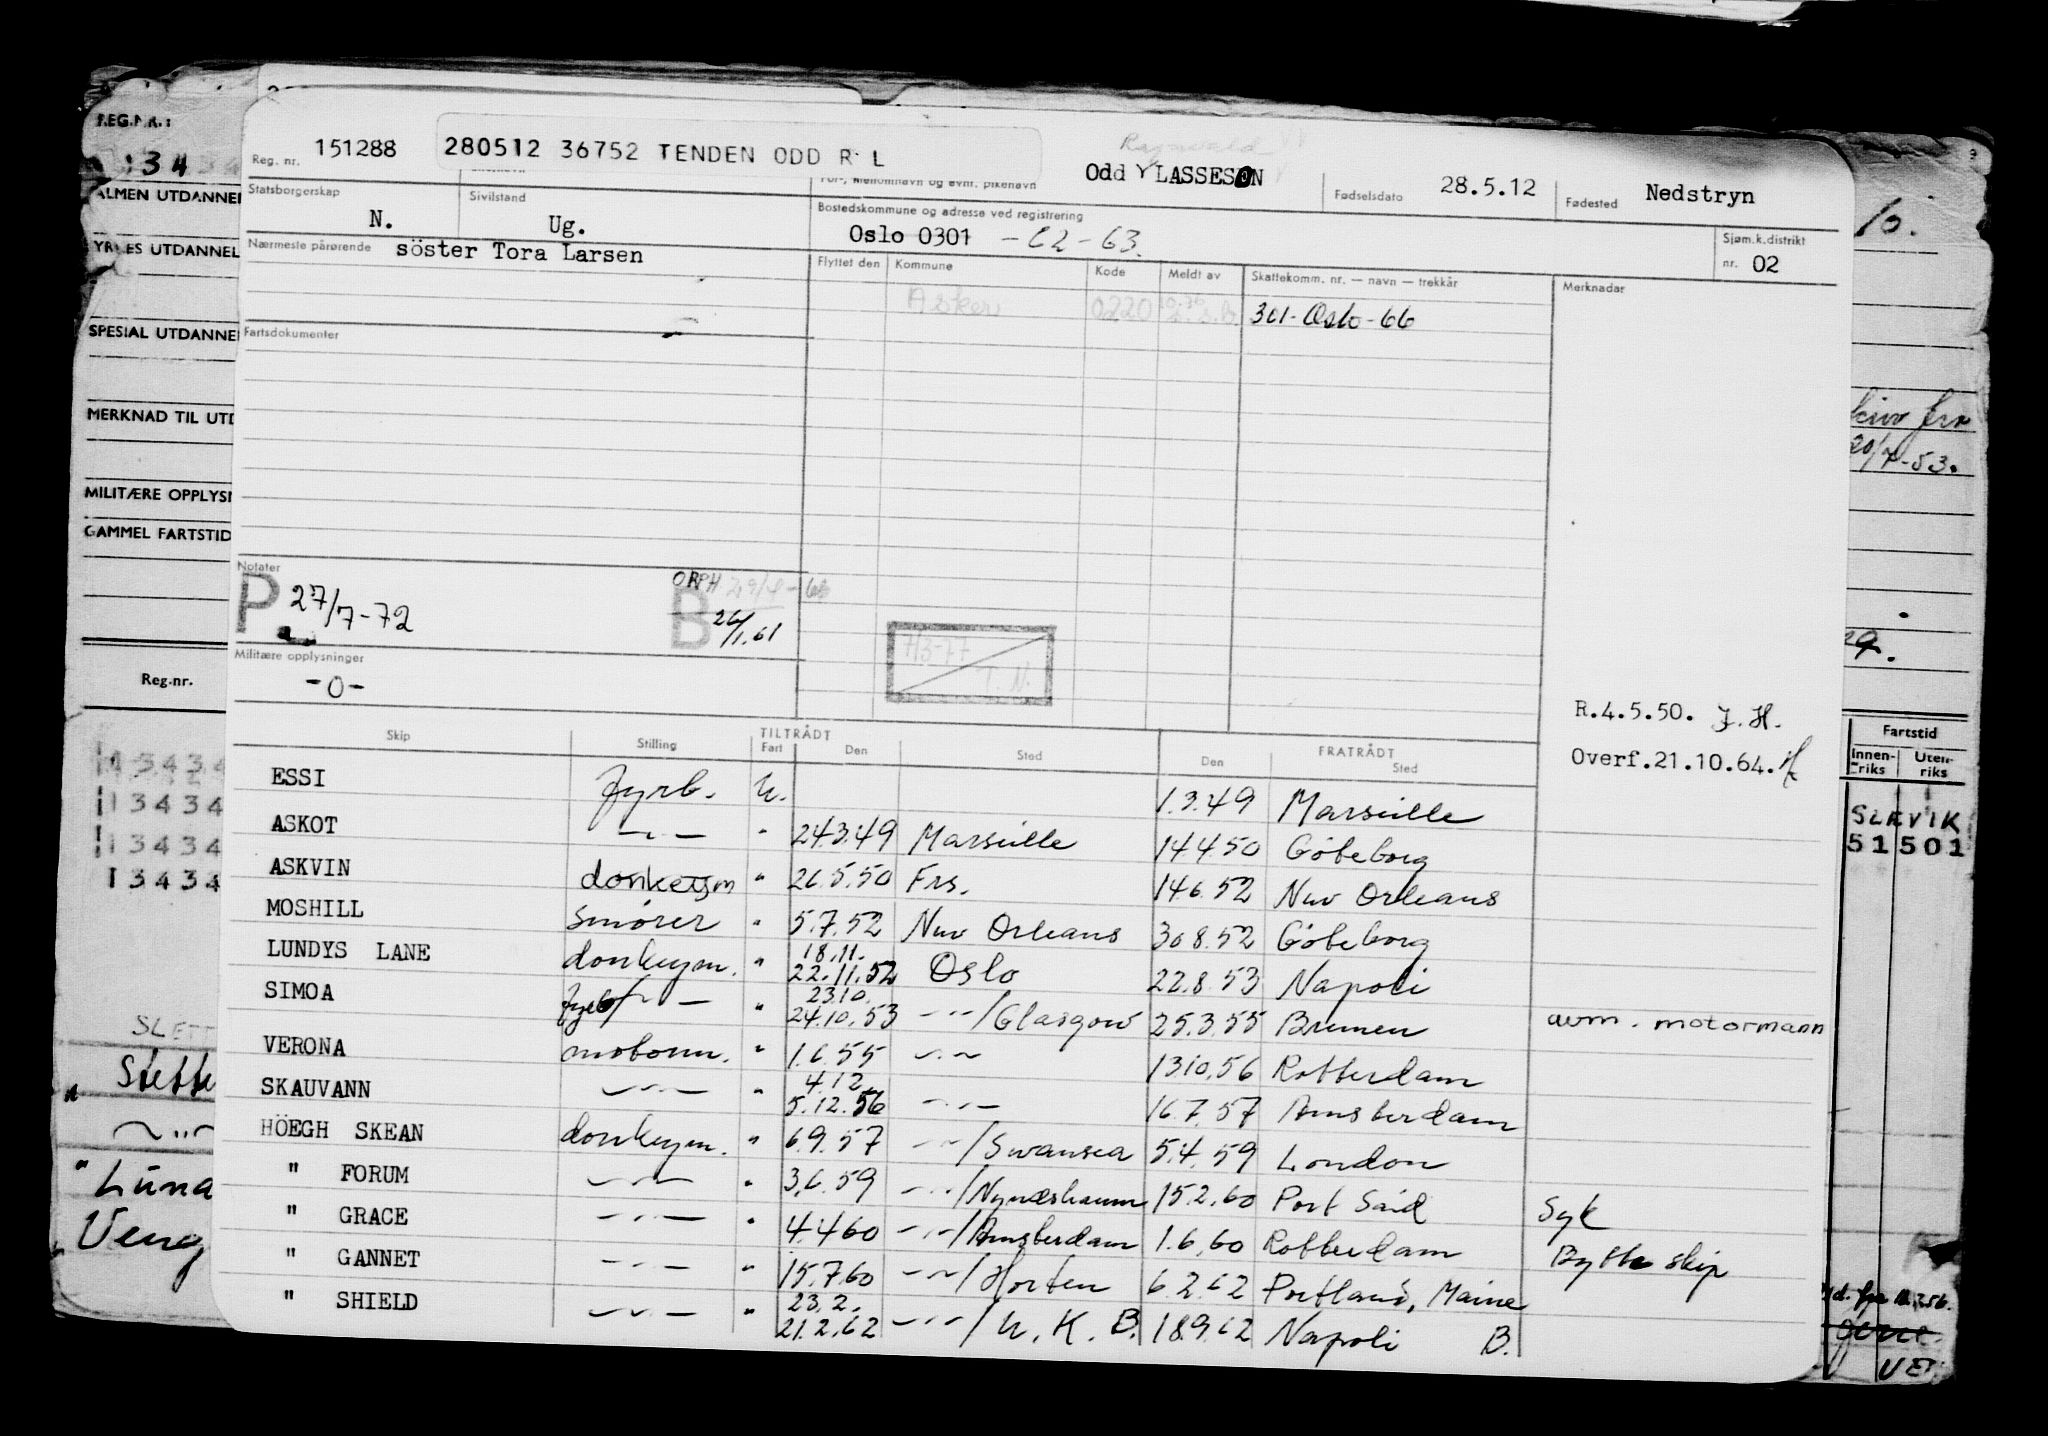 REG.NR.:
34
ALMEN UTDANNEL
YRKES UTDANNEL
SPESIAL UTDANNEL
MERKNAD TIL UTD
MILITÆRE OPPLYSN
GAMMEL FARTSTID
Reg.nr.
13434
13434
13434
13434
SLETT
Stette
"Luna
Veng
Reg. nr. 151288 280512 36752 TENDEN ODD R L
For-, mellomnavn og evnt. pikenavn Odd LASSESON
Ragnvald
Fødselsdato 28.5.12 Fødested Nedstryn
Statsborgerskap N.
Sivilstand Ug.
Bostedskommune og adresse ved registrering
Oslo 0301 -62-63.
Sjøm.k.distrikt
nr. 02
Nærmeste pårørende söster Tora Larsen
Flyttet den Kommune Kode Meldt av Skattekomm. nr. — navn — trekkår Merknadar
Asker 0220 301-Oslo-66
Fartsdokumenter
Notater
P 27/7-72
ORPH 29/4-66
B 26/1.61
7/3-77
T. N.
Militære opplysninger
-0-
R.4.5.50. J.H.
Overf.21.10.64.
Skip Stilling TILTRÅDT Fart Den Sted FRATRÅDT Den Sted
ESSI fyrb. u. 1.3.49 Marseille
ASKOT —"— " 24.3.49 Marseille 14.4.50 Göteborg
ASKVIN donkeym " 26.5.50 Frs. 14.6.52 New Orleans
MOSHILL smører " 5.7.52 New Orleans 30.8.52 Göteborg
LUNDYS LANE donkeym. " 18.11. 22.11.52 Oslo 22.8.53 Napoli
SIMOA fyrb —"— " 23.10. 24.10.53 —"—/Glasgow 25.3.55 Bremen avm. motormann
VERONA motorm. " 1.6.55 —"— 13.10.56 Rotterdam
SKAUVANN —"— " 4.12. 5.12.56 —"— 16.7.57 Amsterdam
HÖEGH SKEAN donkeym. " 6.9.57 —"—/Swansea 5.4.59 London
" FORUM —"— " 3.6.59 —"—/Nynäshamn 15.2.60 Port Said Syk
" GRACE —"— " 4.4.60 —"—/Amsterdam 1.6.60 Rotterdam Bytte skip
" GANNET —"— " 15.7.60 —"—/Horten 6.2.62 Portland, Maine
" SHIELD —"— " 23.2. 21.2.62 —"—/U.K. B. 18.9.62 Napoli B.
10.
fra
20/7-53.
29.
Fartstid
Innen-riks Uten-riks
SLEVIK
51501